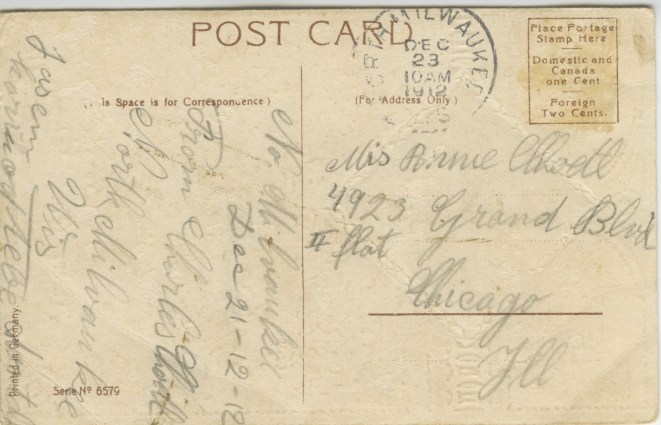 POST CARD
MILWAUKEE
DEC
23
10 AM
1912
Place Postage
Stamp Here
Domestic and
Canada
one Cent
Foreign
Two Cents.
is Space is for Correspondence)
(For Address Only)
No. Milwaukee
Dec 21-12-12
From Charles
North Milwaukee
Wis
Mis Annie
4923 Grand Blvd
II flat
Chicago
Ill
Printed in Germany.
Serie Nº 6579